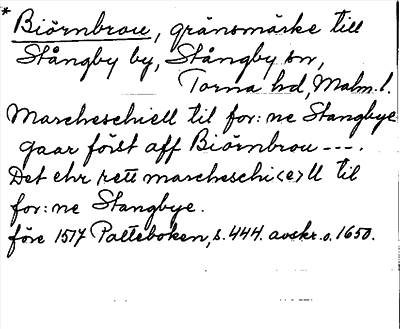 * Biörnbrou, gränsmärke till
Stångby by, Stångby sn,
Torna hd, Malm. l.
Marcheschiell til for: ne Stangbye
gaar först aff Biörnbrou ---.
Det ehr rett marcheschi<e>ll til
for: ne Stangbye.
före 1517 Palteboken, s. 444. avskr. o. 1650.